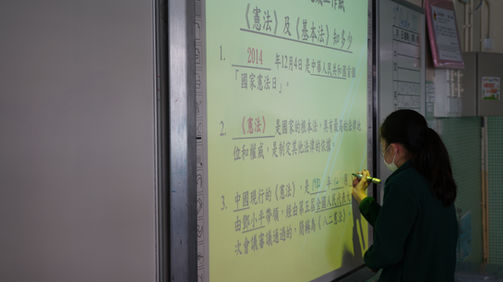 《憲法》及《基本法》知多少
1. 2014 年12月4日是中華人民共和國首個
「國家憲法日」。
2. 《憲法》是國家的根本法，具有最高的法律地
位和權威，是制定其他法律的依據。
3. 中國現行的《憲法》，是 1982 年
由鄧小平帶領，經由第五屆全國人民代表大
次會議審議通過的，簡稱為《八二憲法》